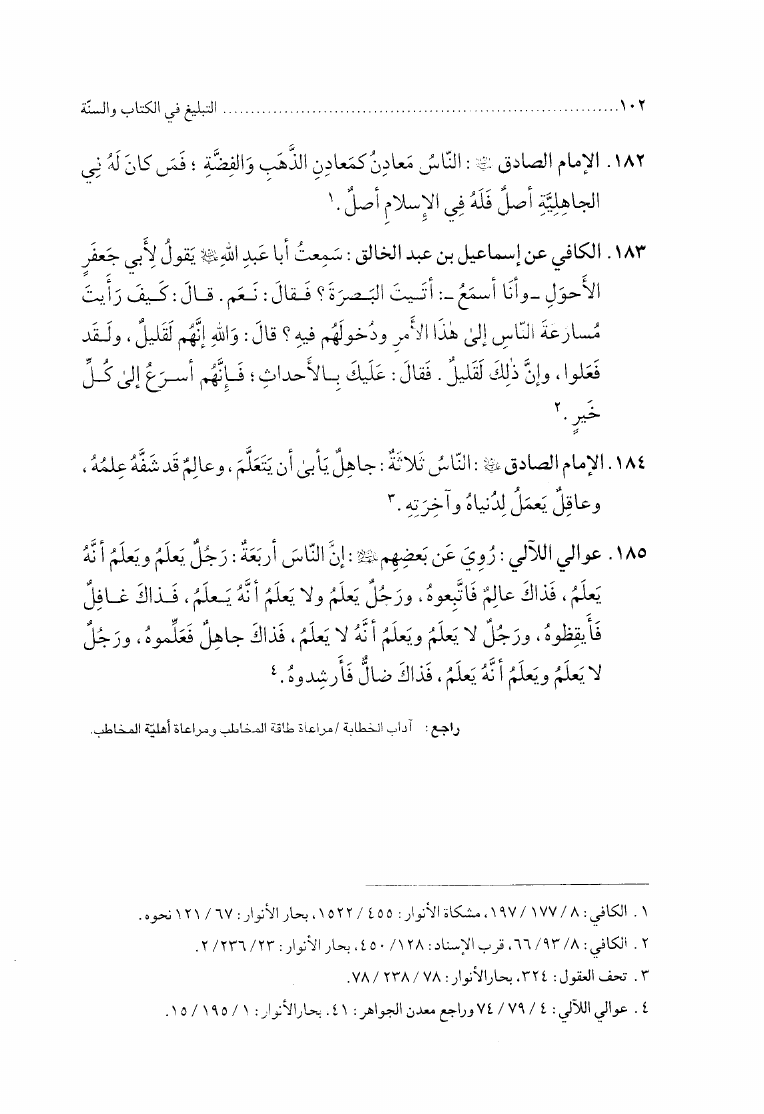 ١٠٢ ........................................................................ التبليغ في الكتاب والسنّة
١٨٢. الإمام الصادق ﷷ: النّاسُ مَعادِنُ كَمَعادِنِ الذَّهَبِ وَالفِضَّةِ؛ فَمَن كانَ لَهُ فِي
الجاهِلِيَّةِ أصلٌ فَلَهُ فِي الإِسلامِ أصلٌ.١
١٨٣. الكافي عن إسماعيل بن عبد الخالق: سَمِعتُ أبا عَبدِ اللهِ ﷷ يَقولُ لِأَبي جَعفَرٍ
الأَحوَلِ ـ وأنَا أسمَعُ ـ: أتَيتَ البَصرَةَ؟ فَقالَ: نَعَم. قالَ: كَيفَ رَأَيتَ
مُسارَعَةَ النّاسِ إلىٰ هٰذَا الأَمرِ ودُخولَهُم فيهِ؟ قالَ: وَاللهِ إنَّهُم لَقَليلٌ، ولَقَد
فَعَلوا، وإنَّ ذٰلِكَ لَقَليلٌ. فَقالَ: عَلَيكَ بِالأَحداثِ؛ فَإِنَّهُم أسرَعُ إلىٰ كُلِّ
خَيرٍ.٢
١٨٤. الإمام الصادق ﷷ: النّاسُ ثَلاثَةٌ: جاهِلٌ يَأبىٰ أن يَتَعَلَّمَ، وعالِمٌ قَد شَفَّهُ عِلمُهُ،
وعاقِلٌ يَعمَلُ لِدُنياهُ وآخِرَتِهِ.٣
١٨٥. عوالي اللآلي: رُوِيَ عَن بَعضِهِم ﷷ: إنَّ النّاسَ أربَعَةٌ: رَجُلٌ يَعلَمُ ويَعلَمُ أنَّهُ
يَعلَمُ، فَذاكَ عالِمٌ فَاتَّبِعوهُ، ورَجُلٌ يَعلَمُ ولا يَعلَمُ أنَّهُ يَعلَمُ، فَذاكَ غافِلٌ
فَأَيقِظوهُ، ورَجُلٌ لا يَعلَمُ ويَعلَمُ أنَّهُ لا يَعلَمُ، فَذاكَ جاهِلٌ فَعَلِّموهُ، ورَجُلٌ
لا يَعلَمُ ويَعلَمُ أنَّهُ يَعلَمُ، فَذاكَ ضالٌّ فَأَرشِدوهُ.٤
راجع: آداب الخطابة / مراعاة طاقة المخاطب ومراعاة أهليّة المخاطب.
١. الكافي: ٨ / ١٧٧ / ١٩٧، مشكاة الأنوار: ٤٥٥ / ١٥٢٢، بحار الأنوار: ٦٧ / ١٢١ نحوه.
٢. الكافي: ٨ / ٩٣ / ٦٦، قرب الإسناد: ١٢٨ / ٤٥٠، بحار الأنوار: ٢٣ / ٢٣٦ / ٢.
٣. تحف العقول: ٣٢٤، بحارالأنوار: ٧٨ / ٢٣٨ / ٧٨.
٤. عوالي اللآلي: ٤ / ٧٩ / ٧٤ وراجع معدن الجواهر: ٤١، بحارالأنوار: ١ / ١٩٥ / ١٥.